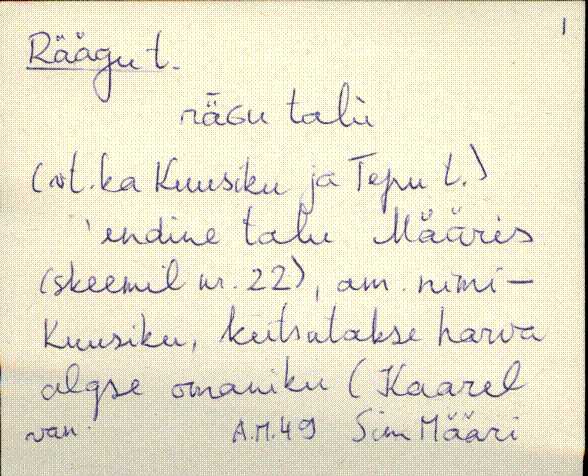 1
Räägu t.
rāGu talù
(vt. ka Kuusiku ja Tepu t.)
'endine talu Määris
(skeemil nr. 22), am. nimi -
Kuusiku, kutsutakse harva
algse omaniku (Kaarel
van. A.M.49 Sim Määri